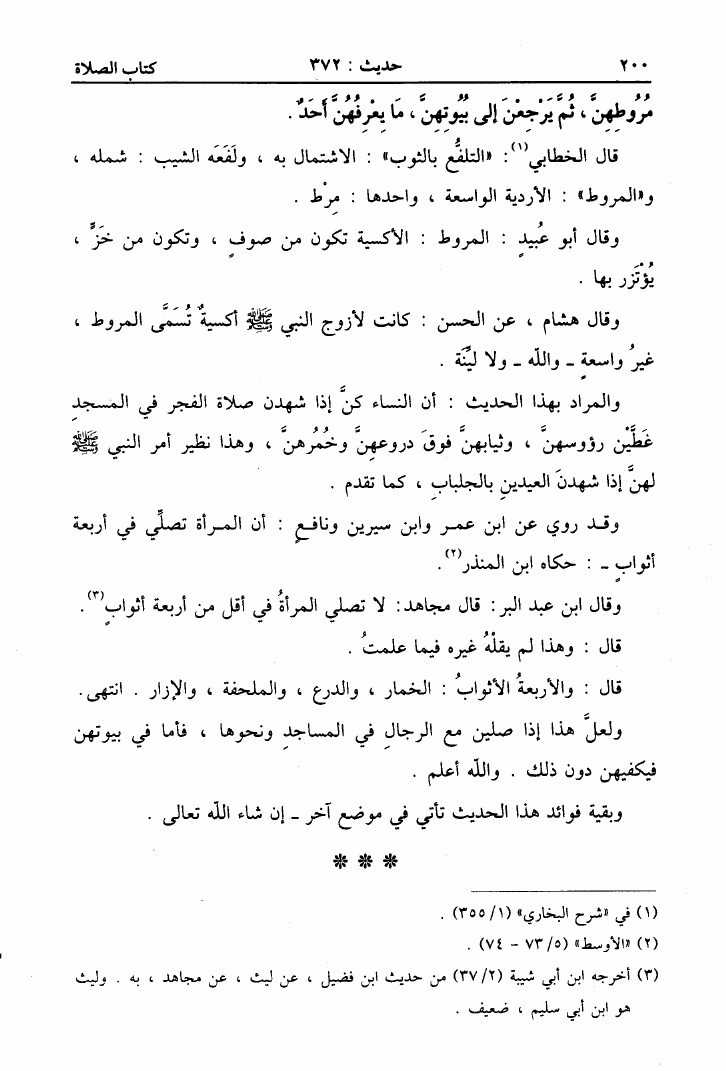 ٢٠٠ حديث : ٣٧٢ كتاب الصلاة
مُرُوطِهِنَّ ، ثُمَّ يَرْجِعْنَ إلى بُيُوتِهِنَّ ، مَا يَعْرِفُهُنَّ أَحَدٌ .
قال الخطابي(١): «التلفُّع بالثوب» : الاشتمال به ، ولَفَعَه الشيب : شمله ،
و«المروط» : الأردية الواسعة ، واحدها : مِرْط .
وقال أبو عُبيدٍ : المروط : الأكسية تكون من صوفٍ ، وتكون من خَزٍّ ،
يُؤْتَزر بها .
وقال هشام ، عن الحسن : كانت لأزوج النبي ﷺ أكسيةٌ تُسَمَّى المروط ،
غيرُ واسعةٍ ـ والله ـ ولا ليِّنَة .
والمراد بهذا الحديث : أن النساء كنَّ إذا شهدن صلاة الفجر في المسجدِ
غَطَّيْن رؤوسهنَّ ، وثيابهنَّ فوقَ دروعهنَّ وخُمُرهنَّ ، وهذا نظير أمر النبي ﷺ
لهنَّ إذا شهدنَ العيدينِ بالجلبابِ ، كما تقدم .
وقد روي عن ابن عمر وابن سيرين ونافعٍ : أن المرأة تصلِّي في أربعة
أثوابٍ ـ : حكاه ابن المنذر(٢).
وقال ابن عبد البر: قال مجاهد: لا تصلي المرأةُ في أقل من أربعة أثوابٍ(٣).
قال : وهذا لم يقلْهُ غيره فيما علمتُ .
قال : والأربعةُ الأثوابُ : الخمار ، والدرع ، والملحفة ، والإزار . انتهى.
ولعلَّ هذا إذا صلين مع الرجالِ في المساجدِ ونحوها ، فأما في بيوتهن
فيكفيهن دون ذلك . والله أعلم .
وبقية فوائد هذا الحديث تأتي في موضع آخر ـ إن شاء الله تعالى .
* * *
(١) في «شرح البخاري» (١/ ٣٥٥) .
(٢) «الأوسط» (٥/ ٧٣ - ٧٤) .
(٣) أخرجه ابن أبي شيبة (٢/ ٣٧) من حديث ابن فضيل ، عن ليث ، عن مجاهد ، به . وليث
هو ابن أبي سليم ، ضعيف .